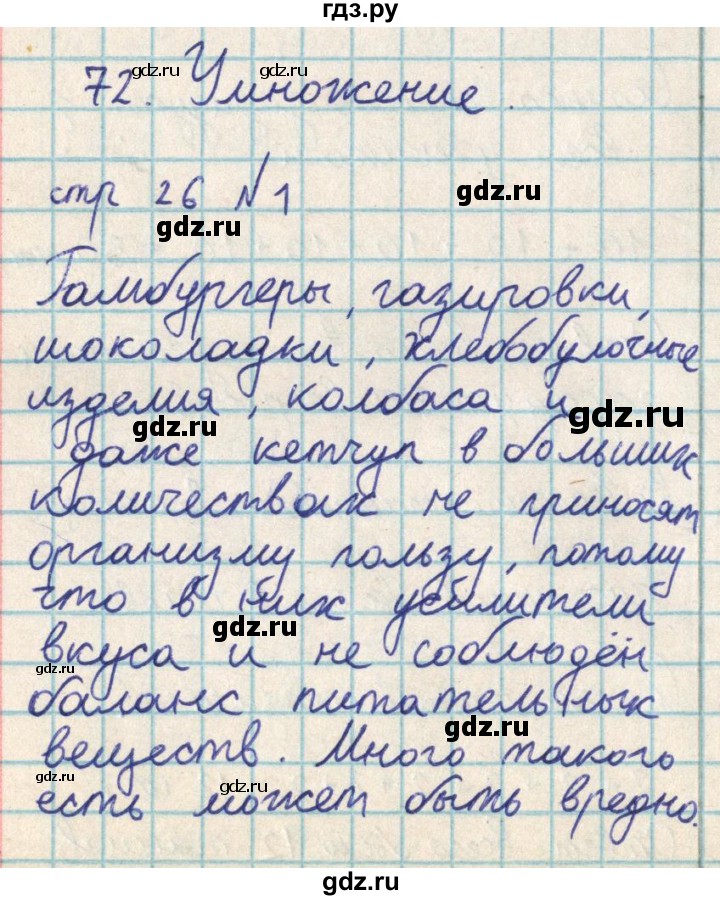 гдз.ру
72. Умножение.
стр 26 №1
Гамбургеры, газировки,
шоколадки, хлебобулочные
изделия, колбаса и
даже кетчуп в больших
количествах не приносят
организму пользу, потому
что в них усилители
вкуса и не соблюдён
баланс питательных
веществ. Много такого
есть может быть вредно.
gdz.ru
gdz.ru
gdz.ru
gdz.ru
gdz.ru
gdz.ru
gdz.ru
gdz.ru
gdz.ru
gdz.ru
gdz.ru
gdz.ru